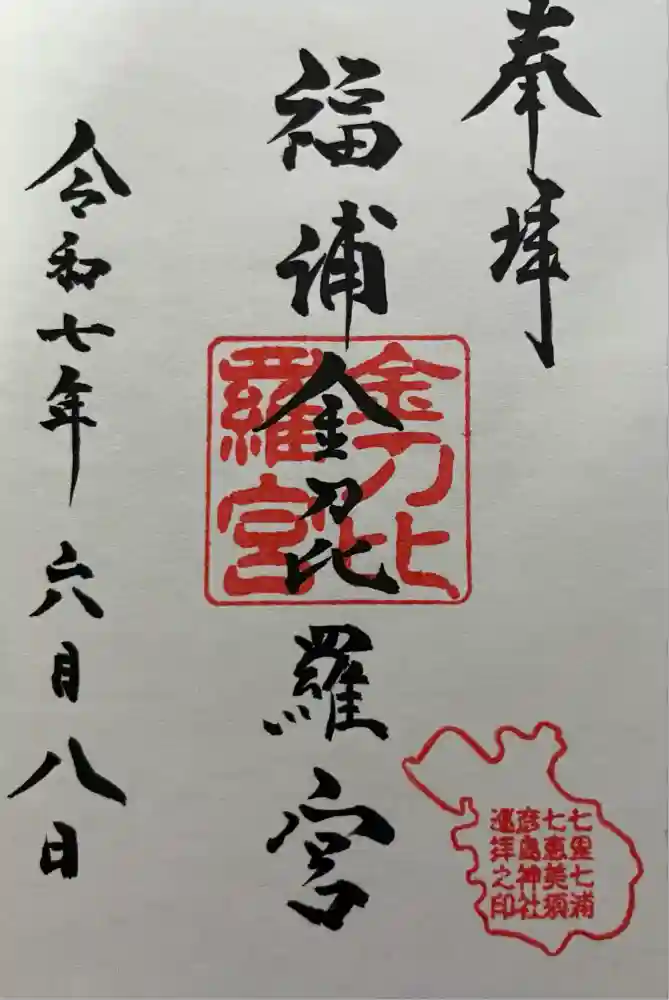 奉拝
福浦金刀比羅宮
金刀比
羅宮
令和七年六月八日
七里七浦
七恵美須
彦島神社
巡拝之印